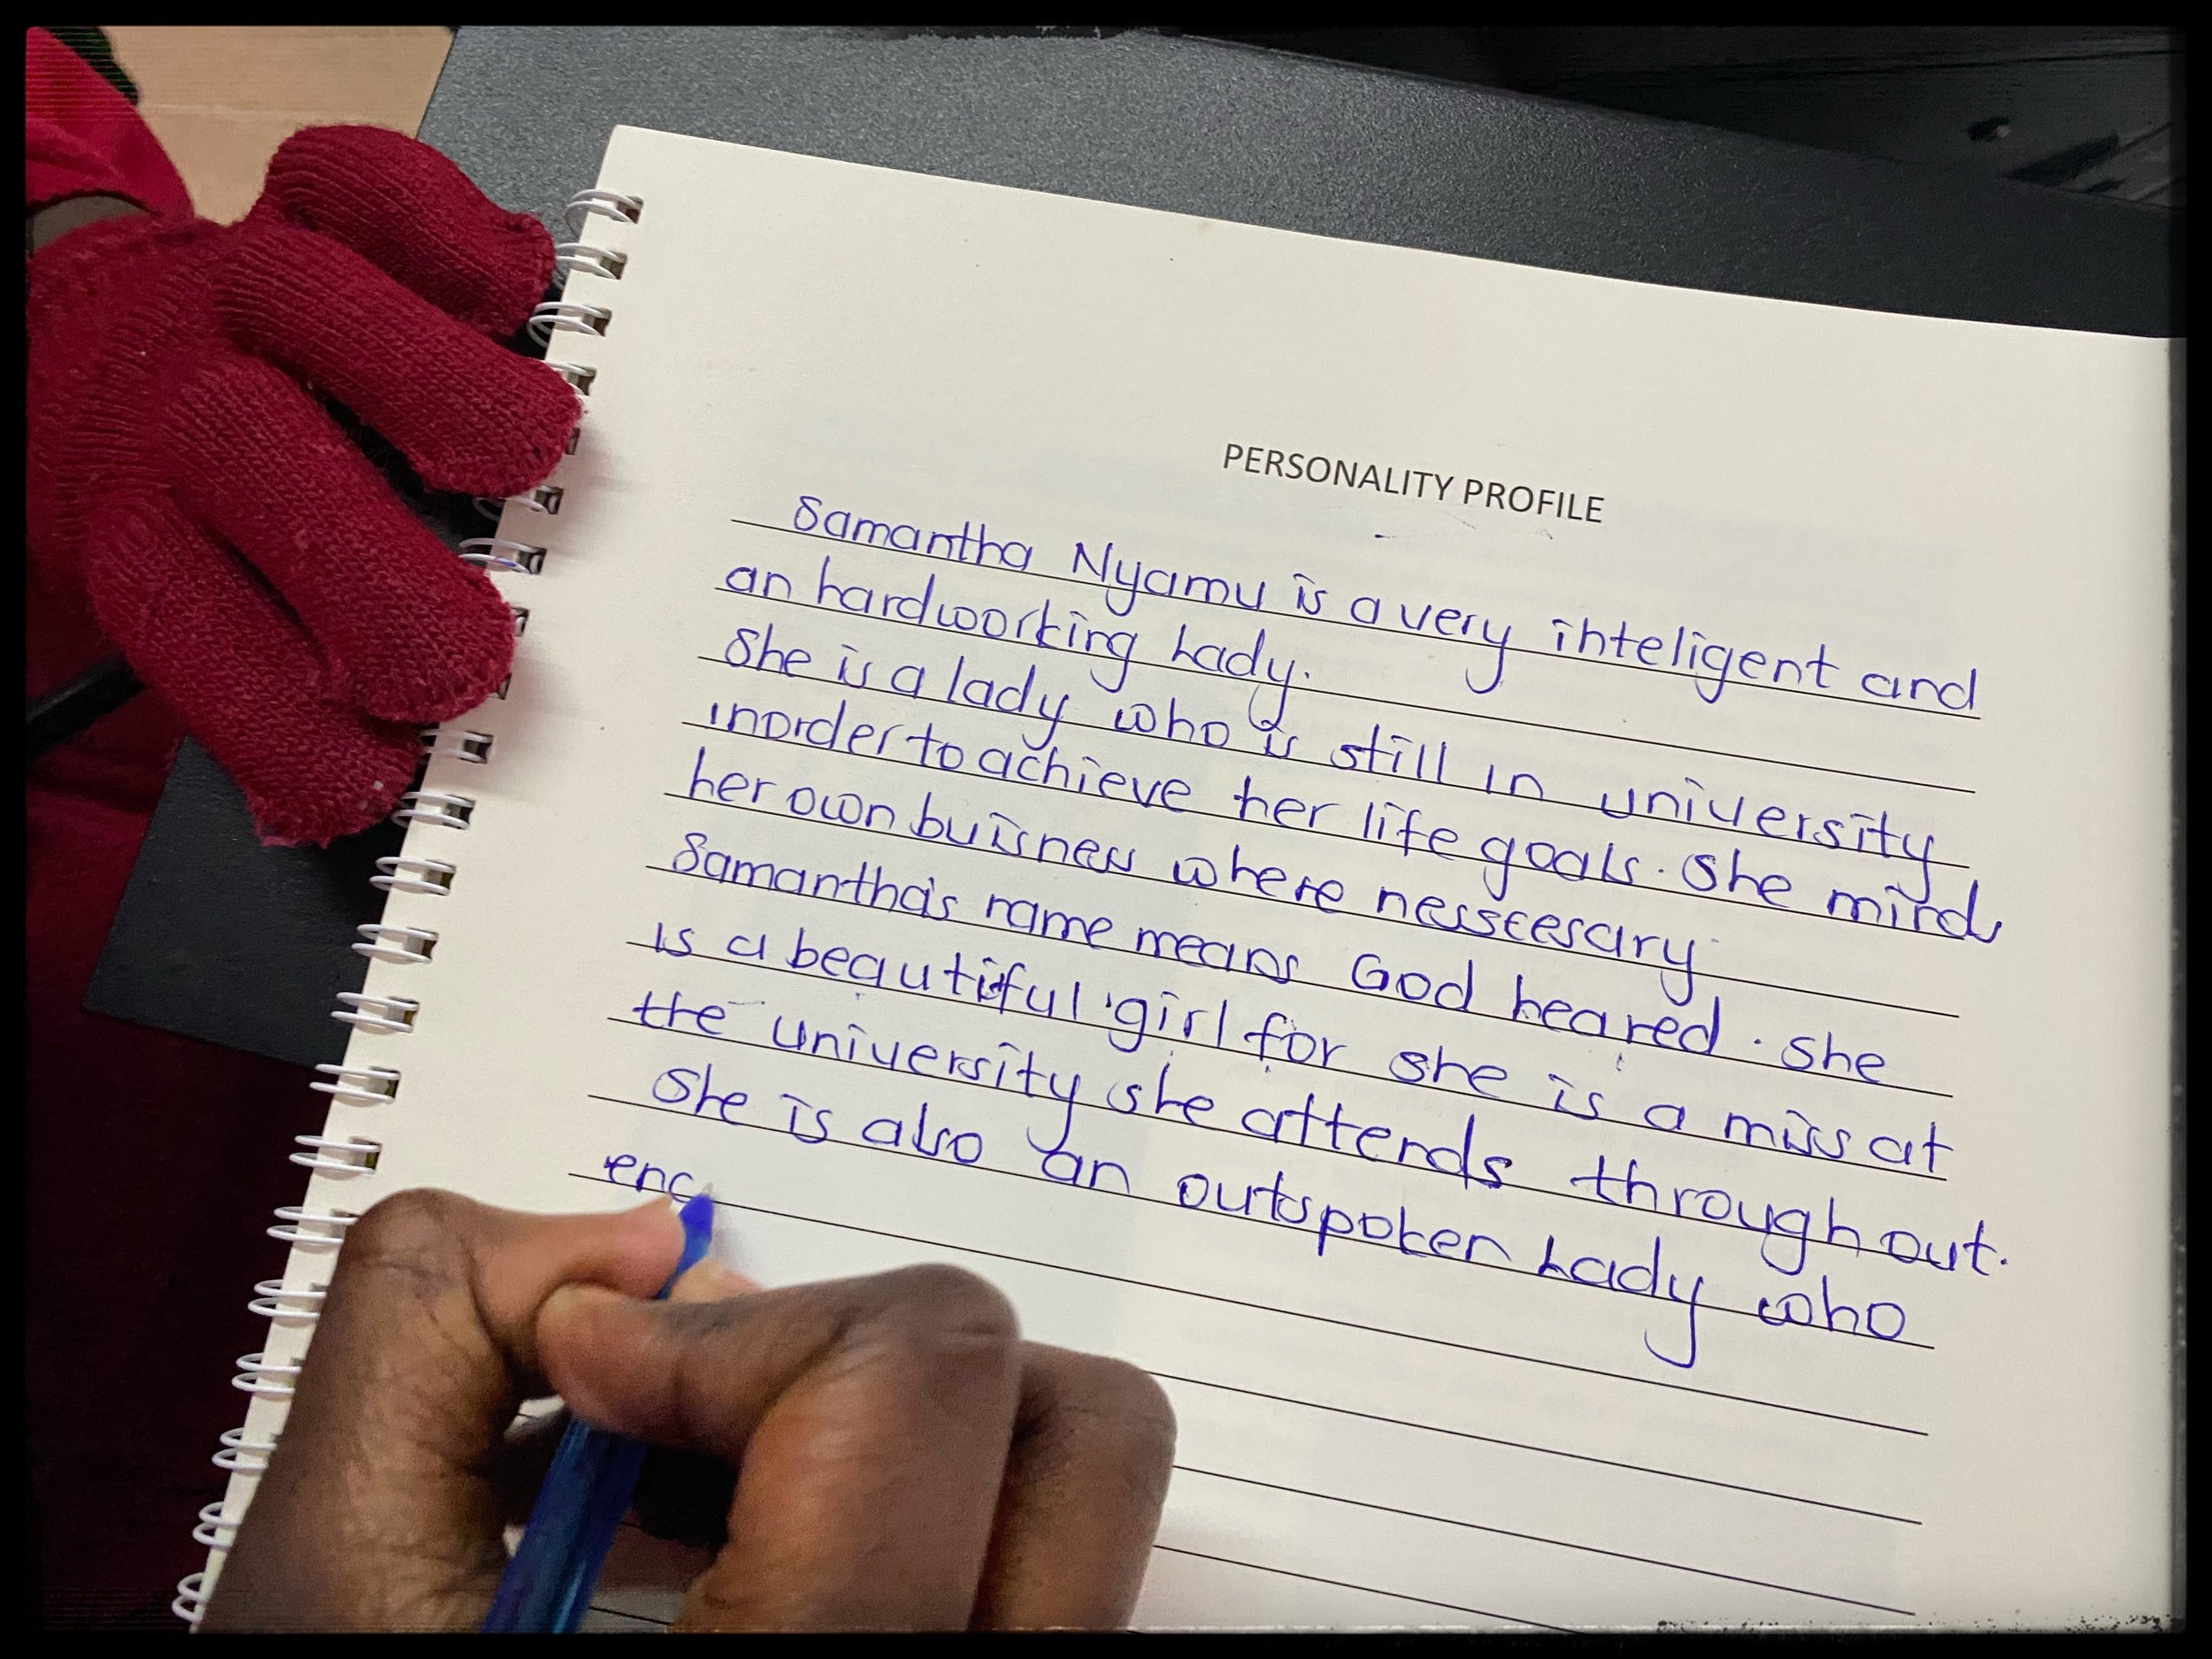 PERSONALITY PROFILE
Samantha Nyamu is a very inteligent and
an hardworking Lady.
She is a lady who is still in university
inorder to achieve her life goals. She minds
her own buisness where nesscesary
Samantha's name means God heared. She
is a beautiful girl for she is a miss at
the university she attends throughout.
She is also an outspoken Lady who
enc